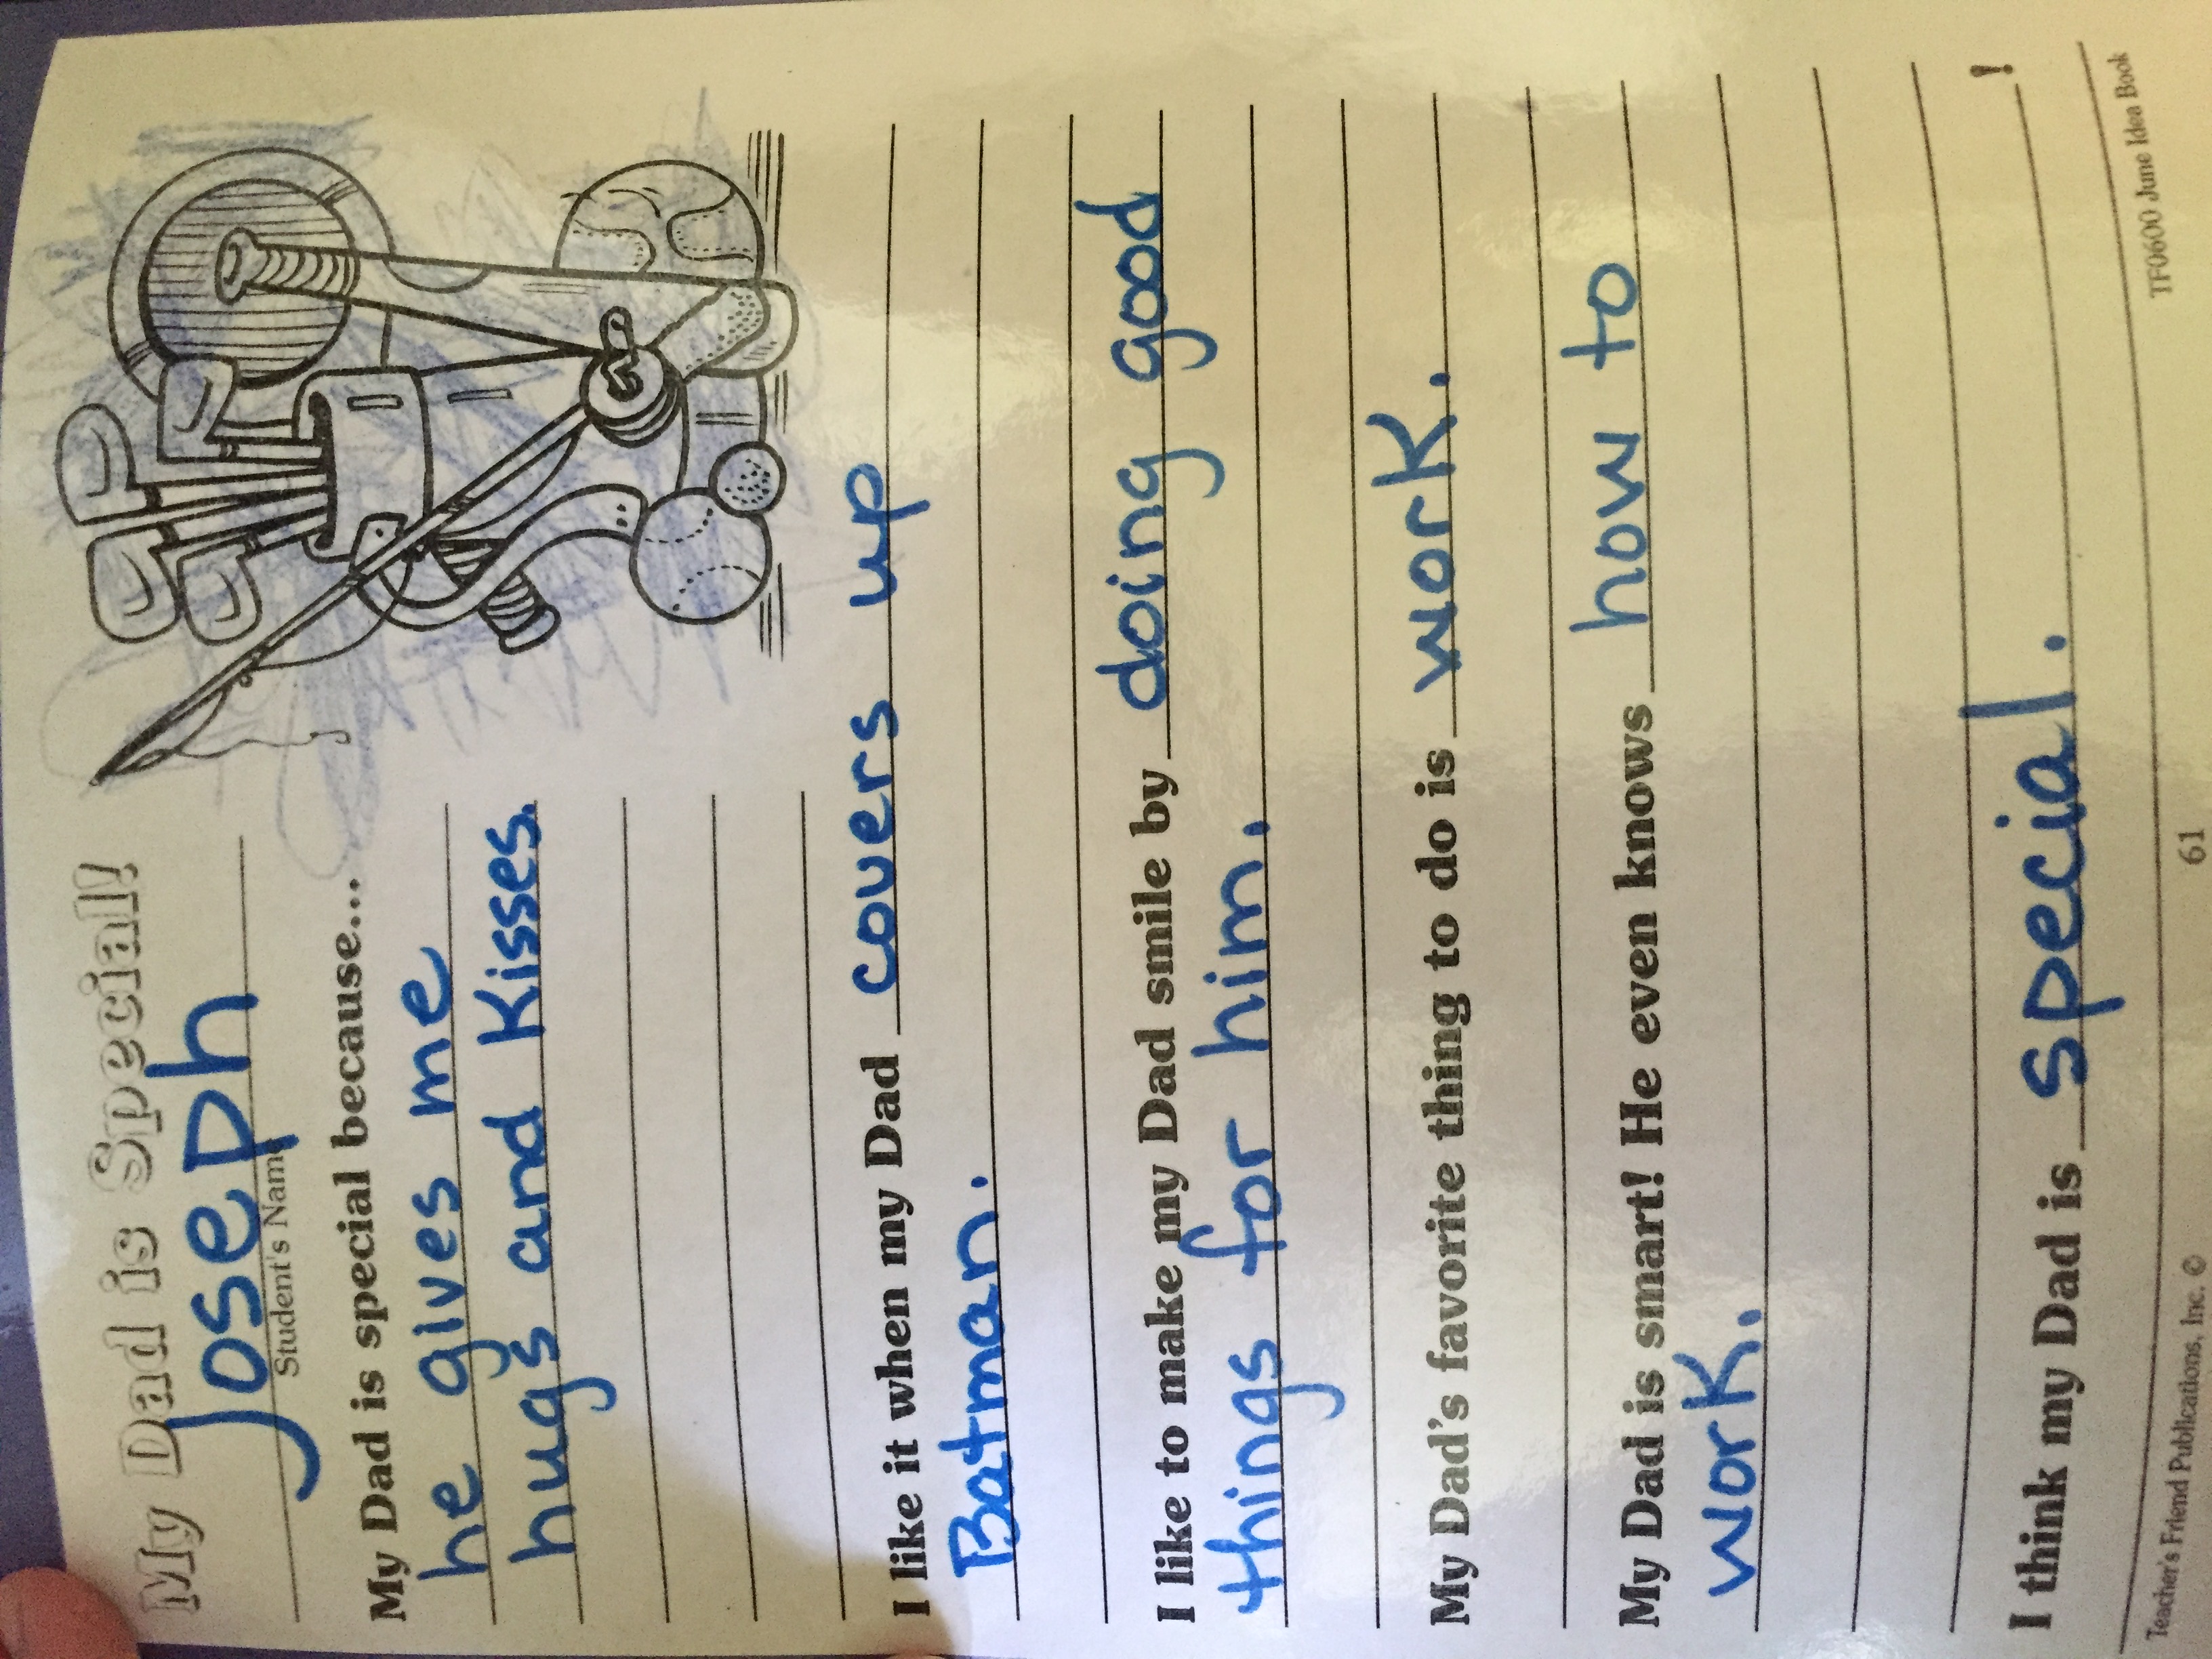 My Dad is Special!
Joseph
Student's Name
My Dad is special because...
he gives me
hugs and Kisses.
I like it when my Dad covers up
Batman.
I like to make my Dad smile by doing good
things for him.
My Dad's favorite thing to do is work.
My Dad is smart! He even knows how to
work.
I think my Dad is special. !
Teacher's Friend Publications, Inc. © 61 TF0600 June Idea Book